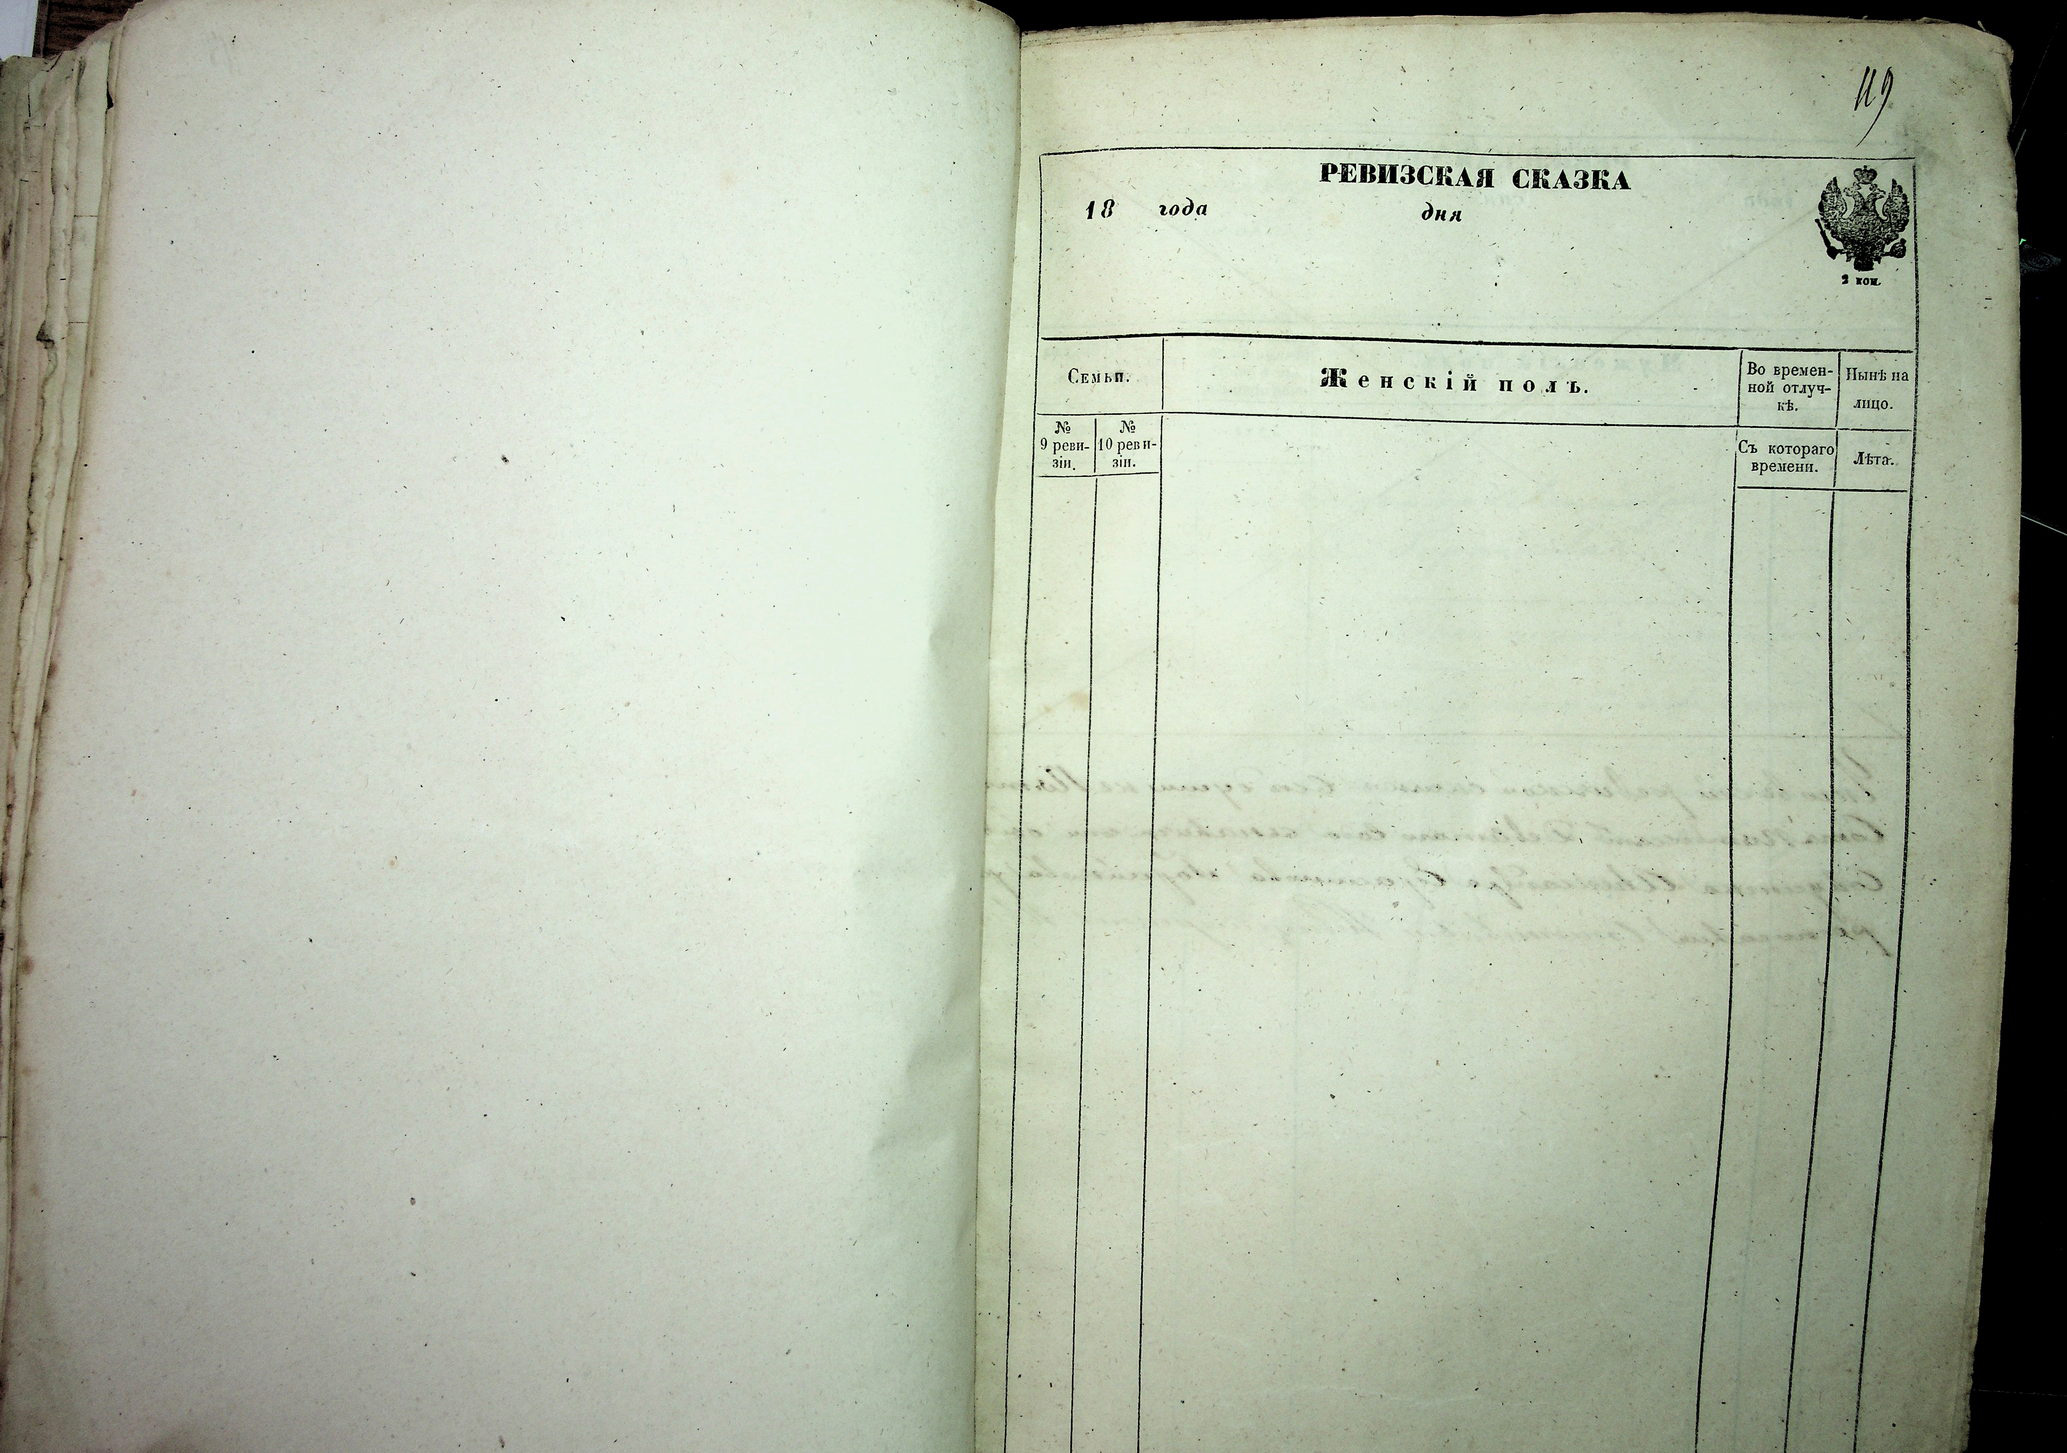 119
РЕВИЗСКАЯ СКАЗКА
18 года дня
2 коп.
Семьи.
Женскій полъ.
Во времен-
ной отлуч-
кѣ.
Нынѣ на
лицо.
№
9 реви-
зіи.
№
10 реви-
зіи.
Съ котораго
времени.
Лѣта.